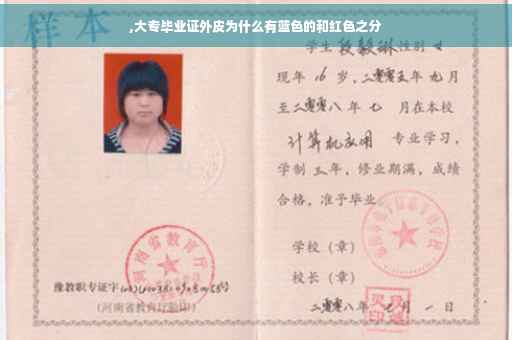 ,大专毕业证外皮为什么有蓝色的和红色之分
样本
学生段毅琳性别女
现年16岁,二零零五年九月
至二零零八年七月在本校
计算机应用 专业学习,
学制三年,修业期满,成绩
合格,准予毕业
学校(章)
校长(章)
二零零八年七月一日
河南省教育厅
豫教职专证字
(河南省教育厅验印)